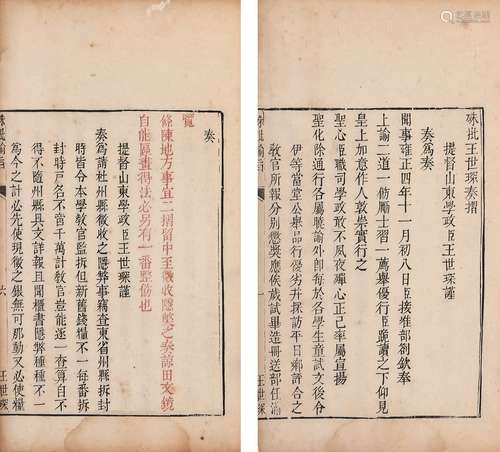 硃批王世琛奏摺
提督山東學政臣王世琛謹
奏為奏
聞事雍正四年十一月初八日臣接准部劄欽奉
上諭二道一飭勵士習一薦舉優行臣跪讀之下仰見
皇上加意作人敦崇實行之
聖心臣職司學政敢不夙夜殫心正己率屬宣揚
聖化除通行各屬曉諭外卽每於各學生童試文後令
伊等當堂公舉品行優劣幷採訪平日鄉評合之
敎官所報分別懲獎應俟歲試畢造冊送部任滿
奏
覽
條陳地方事宜二摺留中至徵收隱弊之奏諭田文鏡
自能區畫得法必另有一番整飭也
提督山東學政臣王世琛謹
奏為請杜州縣徵收之隱弊事竊查東省州縣拆封
時皆令本學敎官監拆但新舊錢糧不一每番拆
封時戶名不啻千萬計敎官豈能逐一查算自不
得不隨州縣具文詳報且開櫃書隱弊種種不一
為今之計必先使現徵之銀無可那動又必使糧
硃批諭旨
六
王世琛